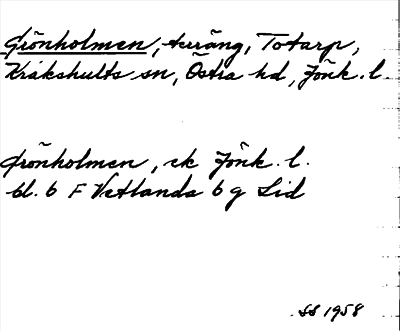 Grönholmen, teräng, Totarp,
Kråkshults sn, Östra hd, Jönk. l.
Grönholmen, ek Jönk. l.
bl. 6 F Vetlanda 6 g Lid
SS 1958